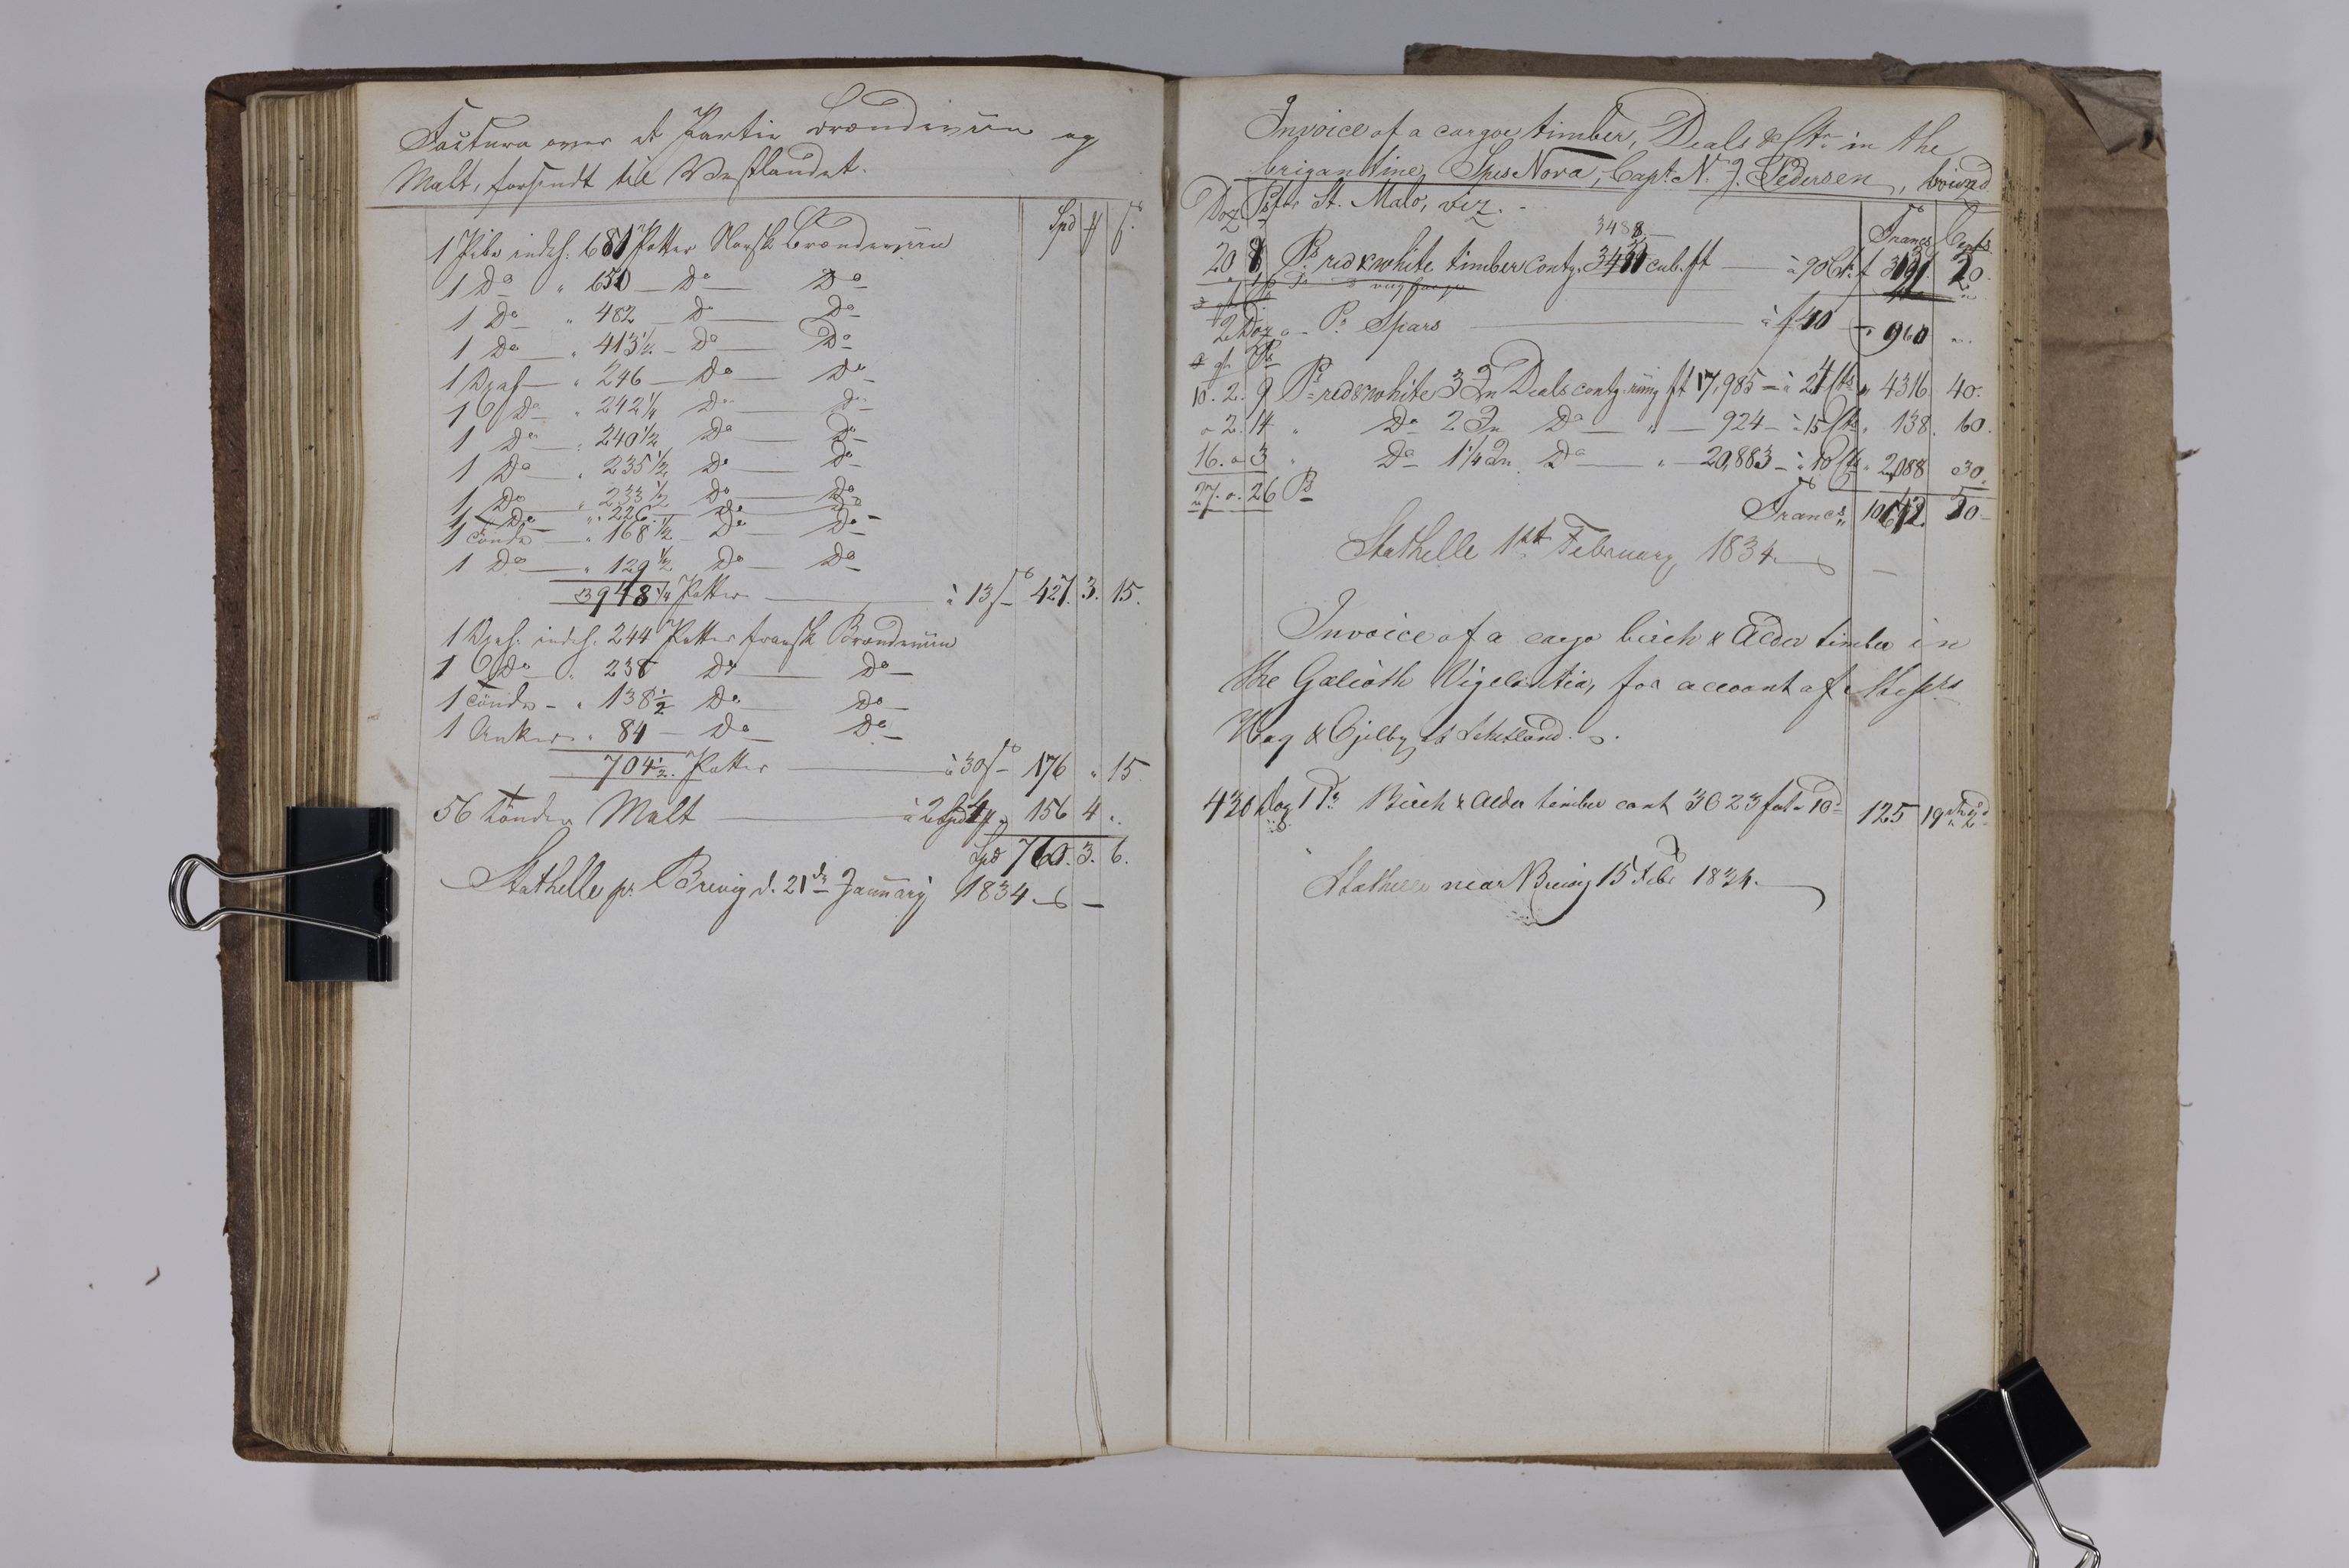 Factura over et Partie Brændeviin og
Malt, forsendt til Vestlandet.
Spd ß
1 Pibe indh: 681 Potter Norsk Brændeviin
1 Do " 650 Do Do
1 Do " 482 Do Do
1 Do " 413½ Do Do
1 Oxeh " 246 Do Do
1 Do " 242¼ Do Do
1 Do " 240½ Do Do
1 Do " 235½ Do Do
1 Do " 233½ Do Do
1 Do " 226 Do Do
1 Tönde " 168½ Do Do
1 Do " 129½ Do Do
3948¼ Potter à 13ß 427. 3. 15.
1 Oxeh. indh. 244 Potter fransk Brændeviin
1 Do " 238 Do Do
1 Tönde " 138½ Do Do
1 Anker " 84 Do Do
704½ Potter à 30ß 176 " 15.
56 Tönder Malt à 2 Spd 4 " 156 4 "
Spd 760. 3. 6.
Stathelle pr. Brevig d. 21de Januarij 1834
Invoice of a cargoe timber, Deals &c in the
brigantine, Spes Nova, Capt. N. J. Pedersen, bound
for St. Malo, viz.
Doz Ps Francs Cents
3488
20 8 Ps red & white timber contg. cub. ft à 90 20.
2 Doz " Ps Spars à f 40 " 960 "
10. 2. 9 Ps red & white 3 In Deals contg. runng ft 17,985 à 24 Cts " 4316. 40.
" 2. 14 " Do 2 In Do " 924 à 15 Cts " 138. 60.
16. " 3 " Do 1¼ In Do " 20,883 à 10 Cts " 2,088 30.
27. " 26 Ps
Francs 10642. 50
Stathelle 1st February 1834
Invoice of a cargo birch & Alder timber in
the Galioth Vigilantia, for account of Messrs
Hay & Ogilby at Schetland.
430 Doz 1 Ps Birch & Alder timber cont 3023 fot à 10d 125 19 2
Stathelle near Brevig 15 Febr 1834.